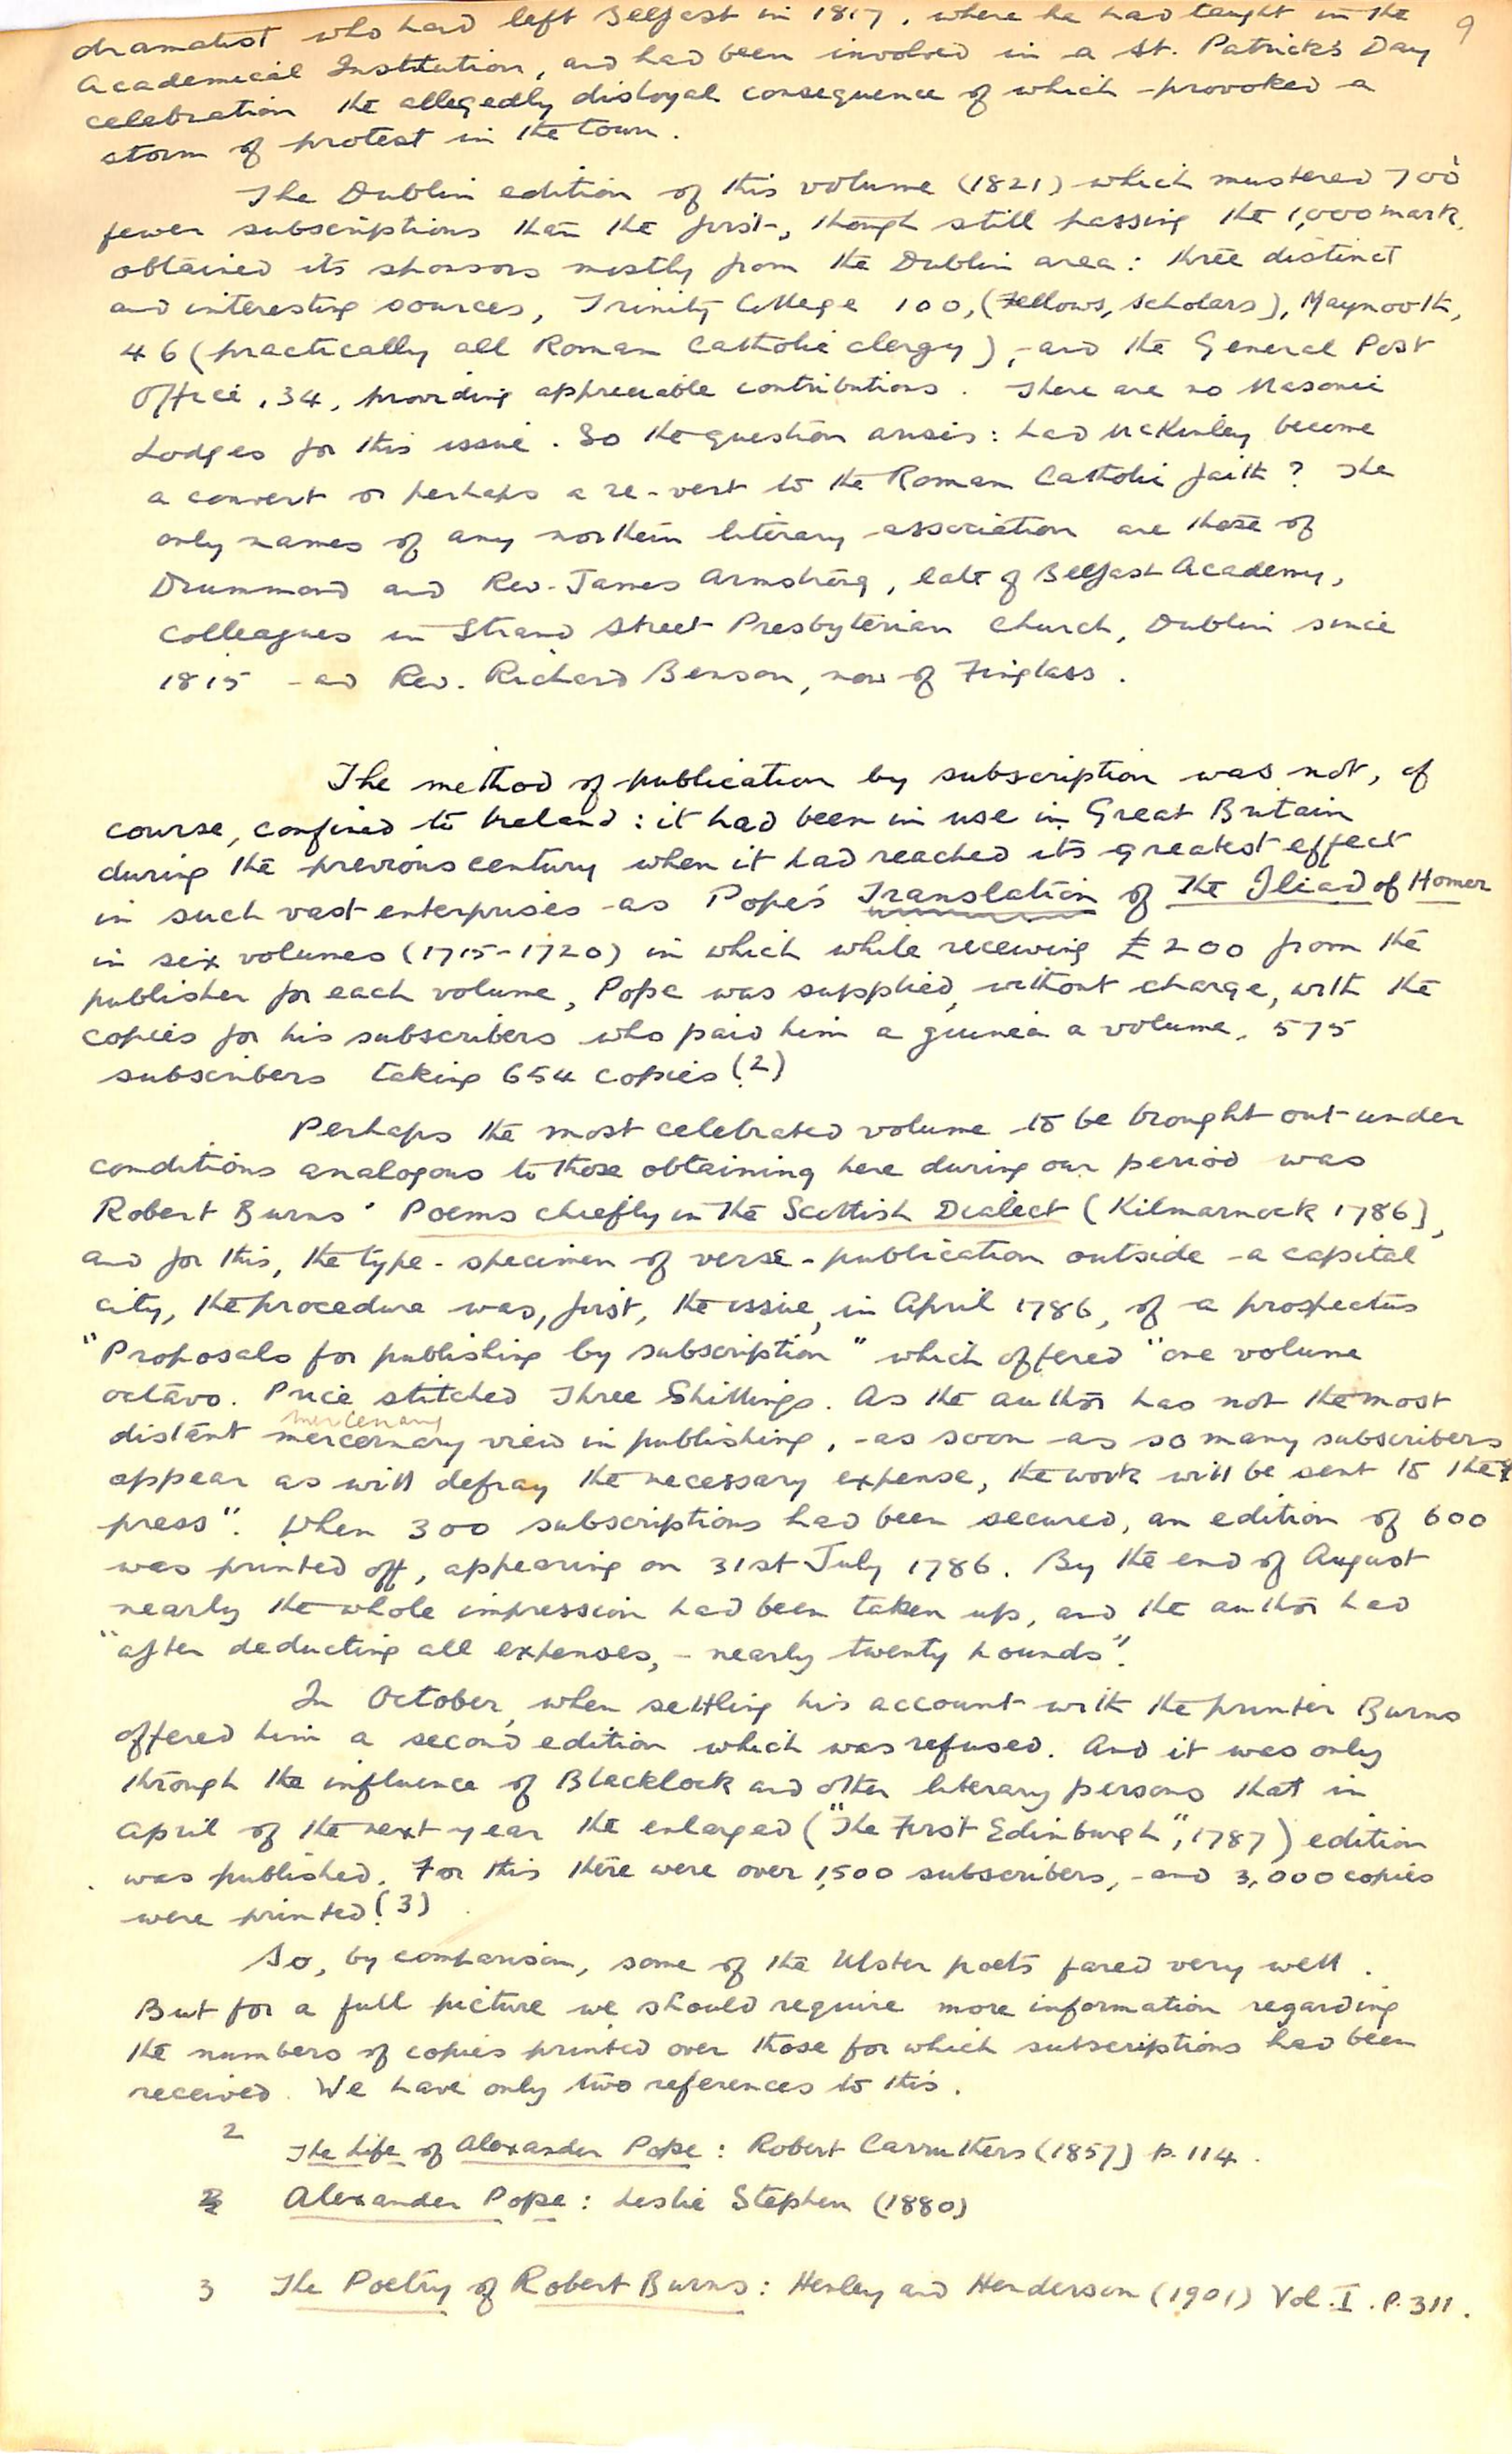 9
dramatist who had left Belfast in 1817, where he had taught in the
Academical Institution, and had been involved in a St. Patrick's Day
celebration the allegedly disloyal consequence of which provoked a
storm of protest in the town.
The Dublin edition of this volume (1821) which mustered 700
fewer subscriptions than the first, though still passing the 1,000 mark,
obtained its sponsors mostly from the Dublin area: three distinct
and interesting sources, Trinity College 100, (Fellows, Scholars), Maynooth,
46 (practically all Roman Catholic clergy), and the General Post
Office, 34, providing appreciable contributions. There are no Masonic
Lodges for this issue. So the question arises: had McKinley become
a convert or perhaps a re-vert to the Roman Catholic faith? The
only names of any northern literary association are those of
Drummond and Rev. James Armstrong, late of Belfast Academy,
Colleagues in Strand Street Presbyterian Church, Dublin since
1815 and Rev. Richard Benson, now of Finglass.
The method of publication by subscription was not, of
course, confined to Ireland: it had been in use in Great Britain
during the previous century when it had reached its greatest effect
in such vast enterprises as Pope's Translation of The Iliad of Homer
in six volumes (1715-1720) in which while receiving £200 from the
publisher for each volume, Pope was supplied, without charge, with the
copies for his subscribers who paid him a guinea a volume, 575
subscribers taking 654 copies.(2)
Perhaps the most celebrated volume to be brought out under
conditions analogous to those obtaining here during our period was
Robert Burns' Poems chiefly in the Scottish Dialect (Kilmarnock 1786),
and for this, the type-specimen of verse-publication outside a capital
city, the procedure was, first, the issue, in April 1786, of a prospectus
"Proposals for publishing by subscription" which offered "one volume
octavo. Price stitched Three Shillings. As the author has not the most
mercenary
distant mercernary view in publishing, as soon as so many subscribers
appear as will defray the necessary expense, the work will be sent to the
press". When 300 subscriptions had been secured, an edition of 600
was printed off, appearing on 31st July 1786. By the end of August
nearly the whole impression had been taken up, and the author had
"after deducting all expenses, - nearly twenty pounds".
In October, when settling his account with the printer Burns
offered him a second edition which was refused. And it was only
through the influence of Blacklock and other literary persons that in
April of the next year the enlarged ("The First Edinburgh", 1787) edition
was published. For this there were over 1,500 subscribers, and 3,000 copies
were printed.(3)
So, by comparison, some of the Ulster poets fared very well.
But for a full picture we should require more information regarding
the numbers of copies printed over those for which subscriptions had been
received. We have only two references to this.
2 The Life of Alexander Pope: Robert Carruthers (1857) p. 114.
Alexander Pope: Leslie Stephen (1880)
3 The Poetry of Robert Burns: Henley and Henderson (1901) Vol. I. P. 311.